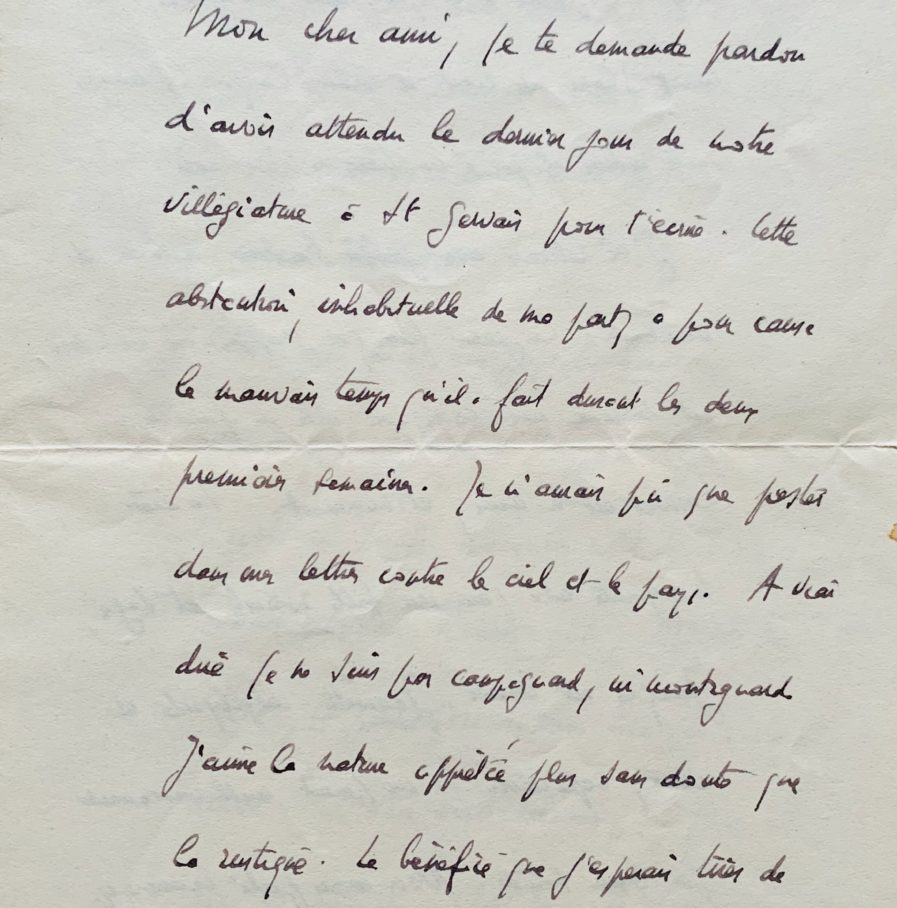 Mon cher ami, je te demande pardon
d'avoir attendu le dernier jour de notre
villégiature à St Gervais pour t'écrire. Cette
abstention, inhabituelle de ma part, a pour cause
le mauvais temps qu'il a fait durant les deux
premières semaines. Je n'aurais pu que pester
dans mes lettres contre le ciel et le pays. A vrai
dire je ne suis pas campagnard, ni montagnard
J'aime la nature apprêtée plus sans doute que
la rustique. Le bénéfice que j'espérais tirer de